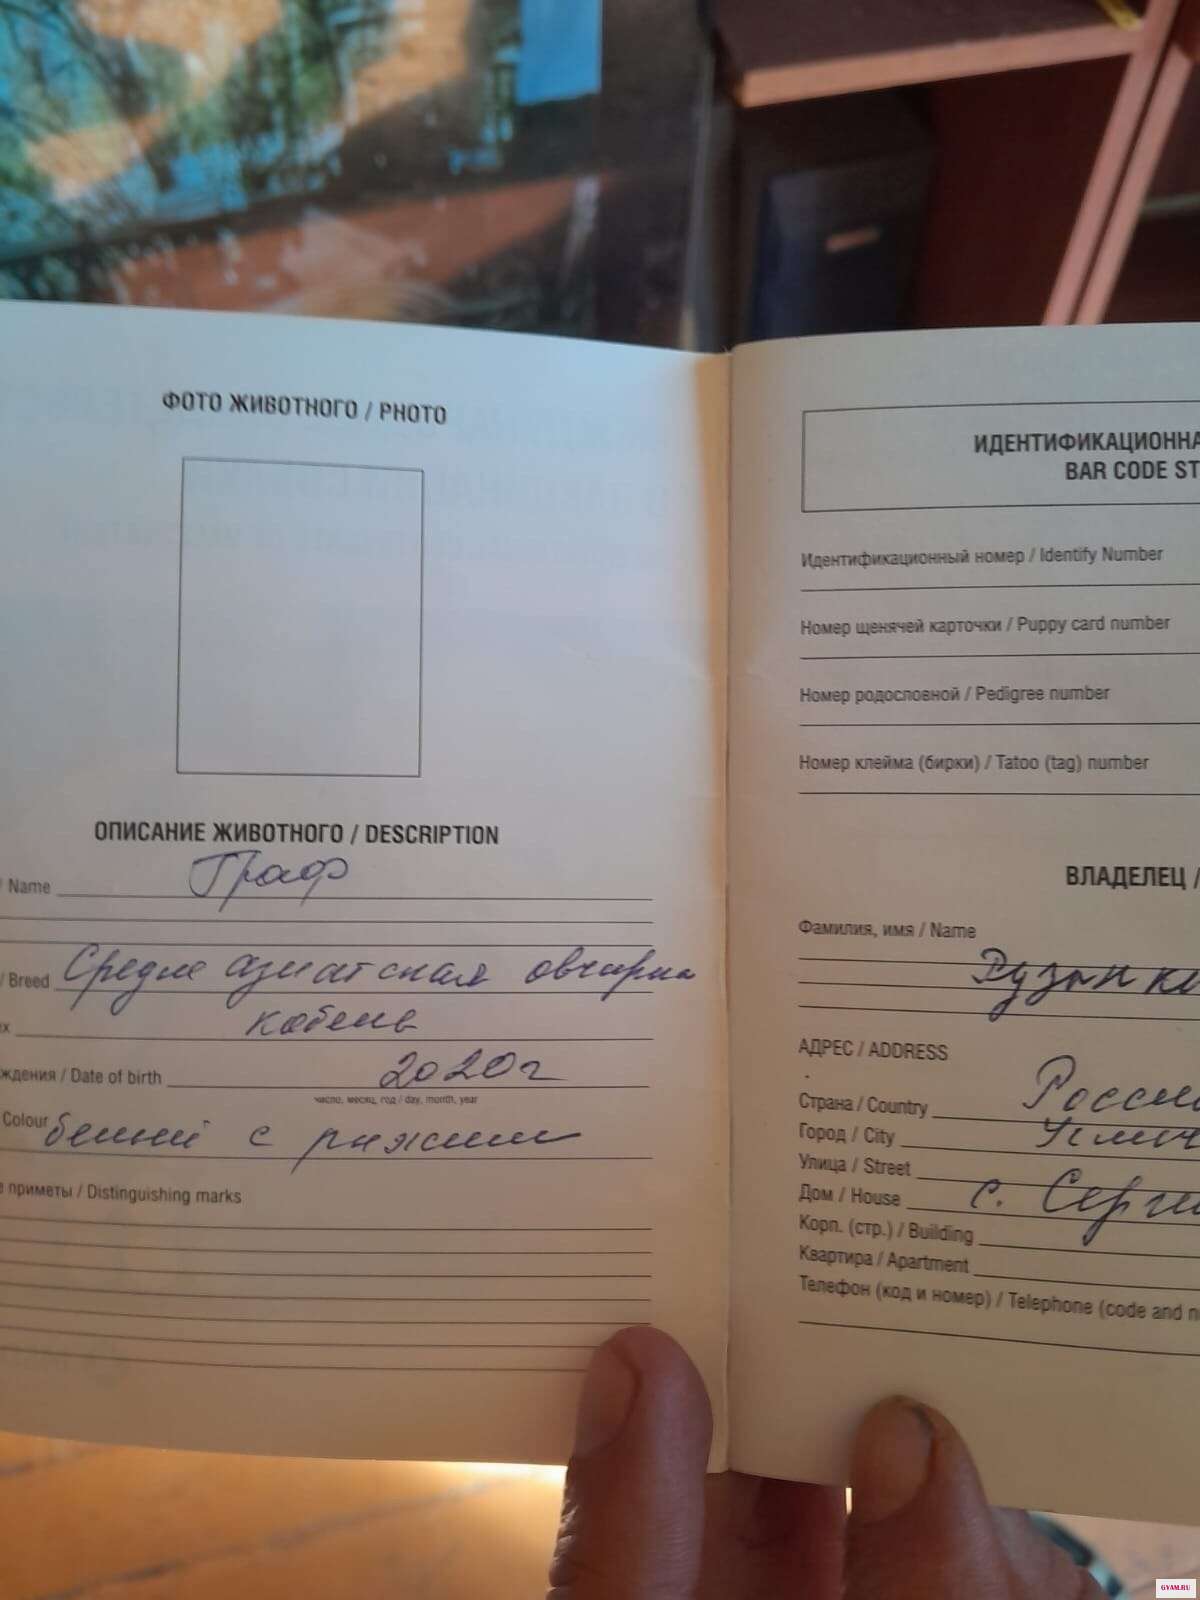 ФОТО ЖИВОТНОГО / PHOTO
ОПИСАНИЕ ЖИВОТНОГО / DESCRIPTION
/ Name Граф
/ Breed Средне азиатская овчарка
кобель
ждения / Date of birth 2020г
число, месяц, год / day, month, year
Colour белый с рыжим
приметы / Distinguishing marks
ИДЕНТИФИКАЦИОННА
BAR CODE ST
Идентификационный номер / Identify Number
Номер щенячей карточки / Puppy card number
Номер родословной / Pedigree number
Номер клейма (бирки) / Tatoo (tag) number
ВЛАДЕЛЕЦ /
Фамилия, имя / Name
АДРЕС / ADDRESS
Страна / Country Росси
Город / City
Улица / Street
Дом / House с. Серги
Корп. (стр.) / Building
Квартира / Apartment
Телефон (код и номер) / Telephone (code and n
GVAM.RU